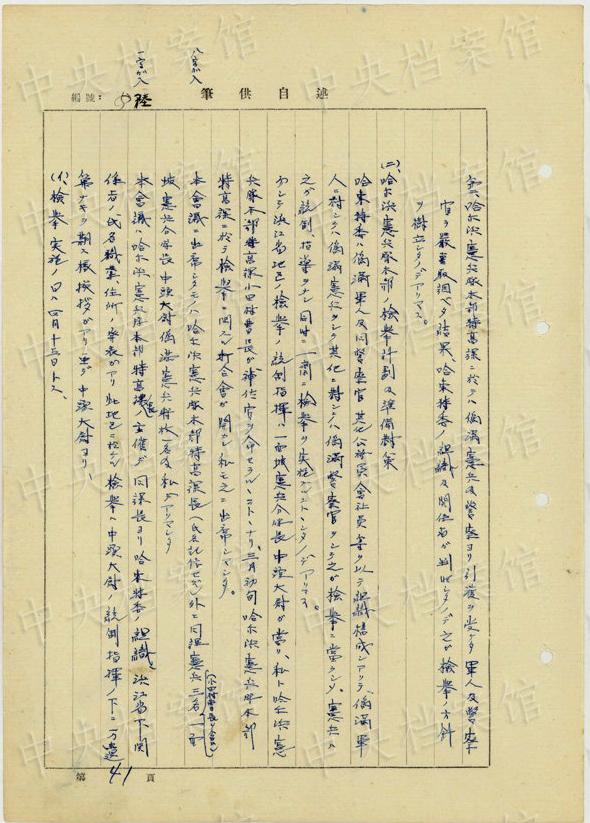 述自供筆
編號:
陸
八字加入
一字加入
哈尓浜憲兵隊本部特高課ニ於テハ偽満憲兵及警察ヨリ引渡ヲ受ケタ軍人及警察
官ヲ嚴重取調ベタ結果、哈東特委ノ組織及関係者ガ判明シタノデ之ガ検挙ノ方針
ヲ樹立シタノデアリマス。
(二)、哈尓浜憲兵隊本部ノ検挙計劃及準備対策
哈東特委ハ偽満軍人及同警察官其他公務員會社員等ヲ以テ組織構成シアリテ、偽満軍
人ニ対シテハ偽満憲兵ヲシテ其他ニ対シテハ偽満警察官ヲシテ之ガ検挙ニ當ラシメ、憲兵ハ
之ガ統制、指導ヲナシ同時ニ一斉ニ検挙ヲ実施スルコトヽシタノデアリマス。
而シテ浜江省地區ノ検挙ノ統制指揮ハ一面坡憲兵分隊長中項大尉ガ當リ、私ト哈尓浜憲
兵隊本部特高課小田村曹長ガ補佐官ヲ命ゼラルヽコトヽナリ、三月初旬哈尓浜憲兵隊本部
特高課ニ於テ検挙ニ関スル打合會ガ開カレ私モ之ニ出席シマシタ。
本會議ニ出席シタモノハ哈尓浜憲兵隊本部特高課長(氏名記憶セズ)外ニ同課憲兵三名、一面
(小田村曹長ヲ含ム)
坡憲兵分隊長中項大尉偽満憲兵将校一名及私デアリマシタ
本會議ハ哈尓浜憲兵隊本部特高課長主催デ同課長ヨリ哈東特委ノ組織、浜江省下関
係者ノ氏名職業、住所ノ発表ガアリ此地區ニ於ケル検挙ハ中項大尉ノ統制指揮ノ下ニ万遺
漏ナキヲ期スル様挨拶ガアリ亜デ中項大尉ヨリ、
(1)、検挙実施ノ日ハ四月十三日トス、
第 41 頁
中央档案馆